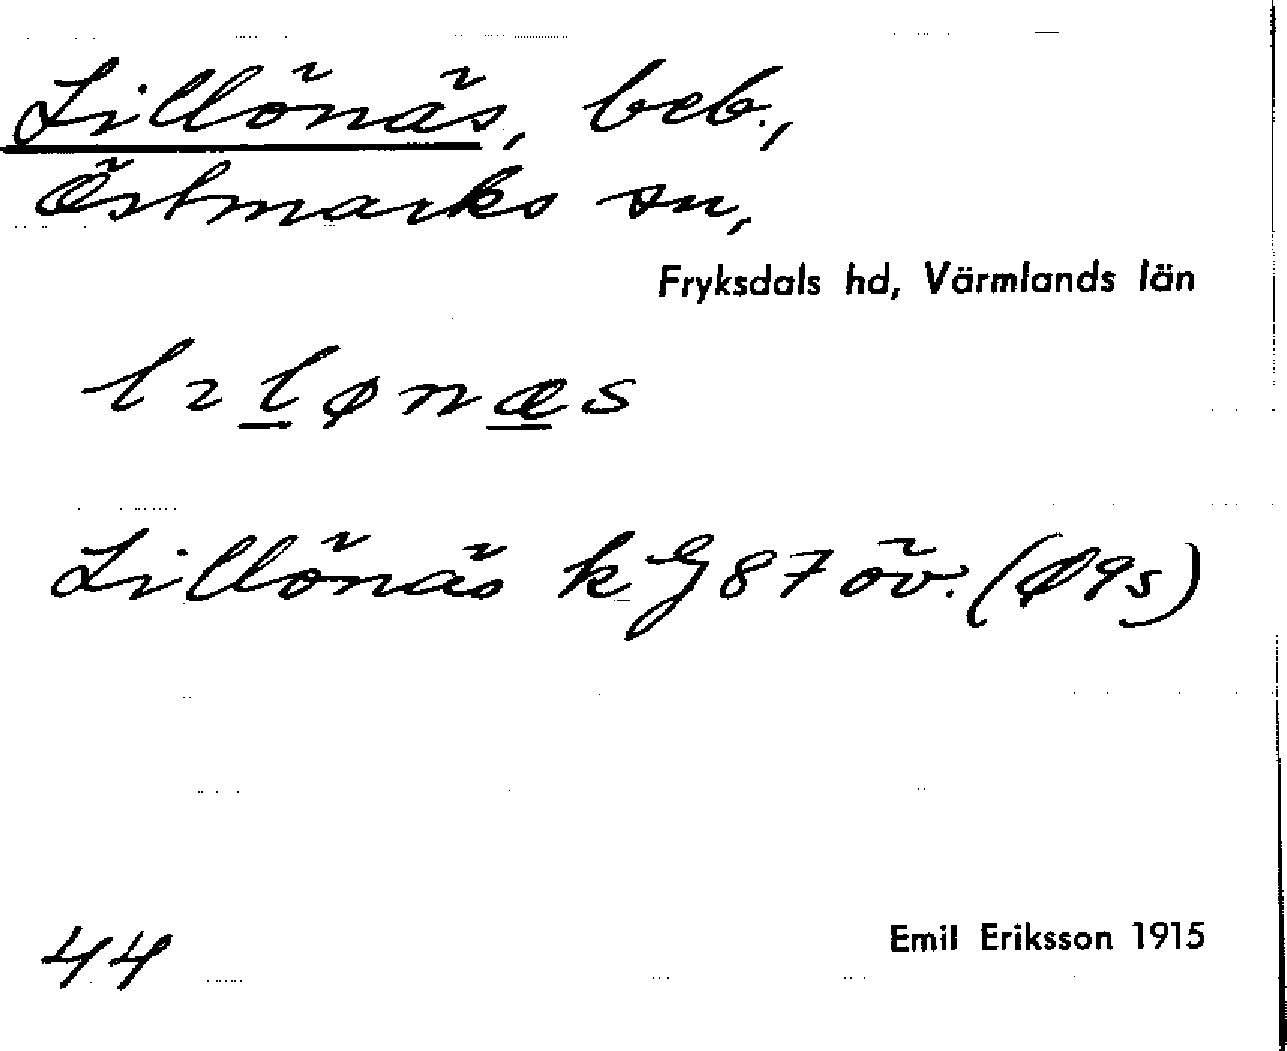 Lillönäs, beb.,
Östmarks sn,
Fryksdals hd, Värmlands län
lılønæs
Lillönäs k G 87 öv. (Ø9s)
44
Emil Eriksson 1915